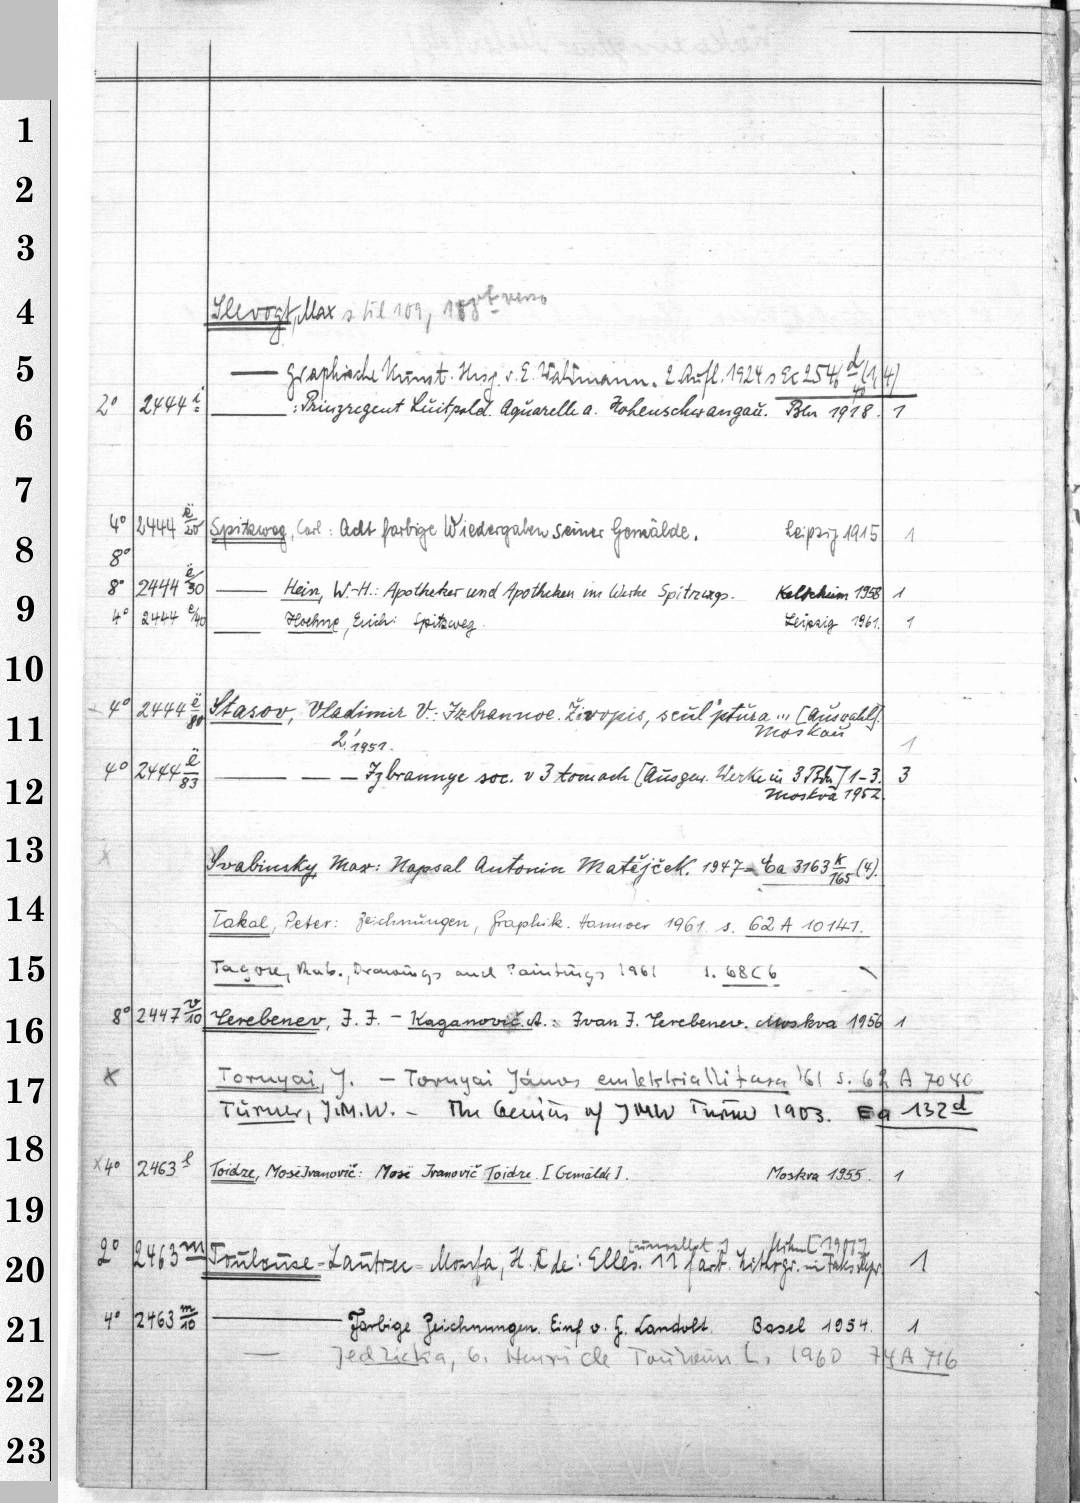 1
2
3
4
Slevogt, Max s. Bl. 109, verso
5
— graphische Kunst. Hrsg. v. E. Waldmann. 2. Aufl. 1924 s Ec 254 d/40 (1,4)
6
2° 2444 i — : Prinzregent Luitpold. Aquarelle a. Hohenschwangau. Bln 1918. 1
7
8
4° 2444 ë/20 Spitzweg, Carl: Acht farbige Wiedergaben seiner Gemälde. Leipzig 1915 1
8°
9
8° 2444 ë/30 — Hein, W.-H.: Apotheker und Apotheken im Werke Spitzwegs. 1958 1
4° 2444 ë/40 — Hoehne, Erich: Spitzweg. Leipzig 1961. 1
10
11
4° 2444 ë/80 Stasov, Vladimir V.: Izbrannoe. Živopis, sculʹptura ... [Auswahl].
2. 1951. Moskau 1
12
4° 2444 ë/83 — — — Izbrannye soc. v 3 tomach [Ausgew. Werke in 3 Bdn] 1-3. 3
Moskva 1952.
13
x Svabinsky, Max: Napsal Antonin Matějček. 1947 = Ea 3163 k/165 (4).
14
Takal, Peter: Zeichnungen, Graphik. Hannover 1961. s. 62 A 10141.
15
Tagore, Rab., Drawings and Paintings 1961 s. 68 C 6
16
8° 2447 v/10 Terebenev, I. I. - Kaganovič. A.: Ivan I. Terebenev. Moskva 1956 1
17
x Tornyai, J. - Tornyai János emlékkiallitasa '61 s. 62 A 7040
Turner, J.M.W. - The Genius of JMW Turner 1903. Ea 132 d
18
x 4° 2463 l Toidze, Mose Ivanovič: Mose Ivanovič Toidze. [Gemälde]. Moskva 1955. 1
19
20
2° 2463 m Toulouse-Lautrec-Monfa, H. de: Elles. 11 farb. Lithogr. in Faks. Repr. 1
21
4° 2463 m/10 — Farbige Zeichnungen. Einf. v. H. Landolt. Basel 1954. 1
— Jedlicka, G. Henri de Toulouse L. 1960 74 A 716
22
23